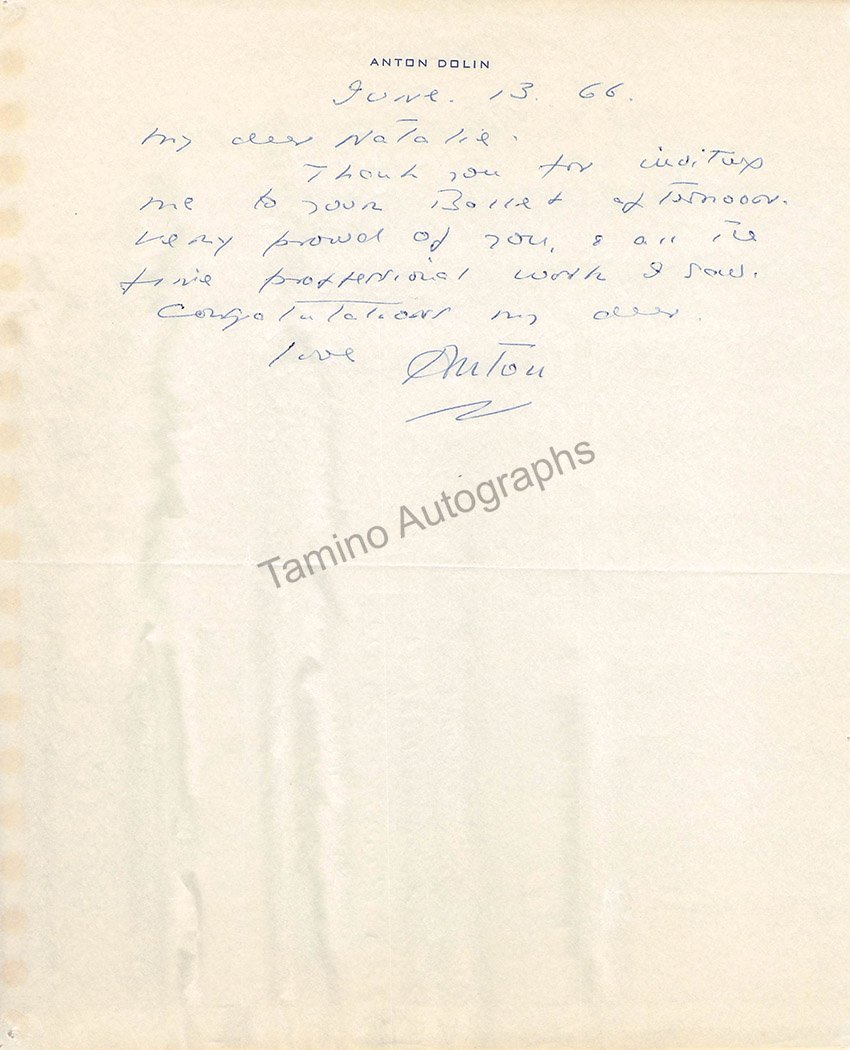 ANTON DOLIN
June. 13. 66.
My dear Natalie.
Thank you for inviting
me to your Ballet afternoon.
Very proud of you, & all the
fine proffessional work I saw.
Congratulations my dear.
love Anton
Tamino Autographs